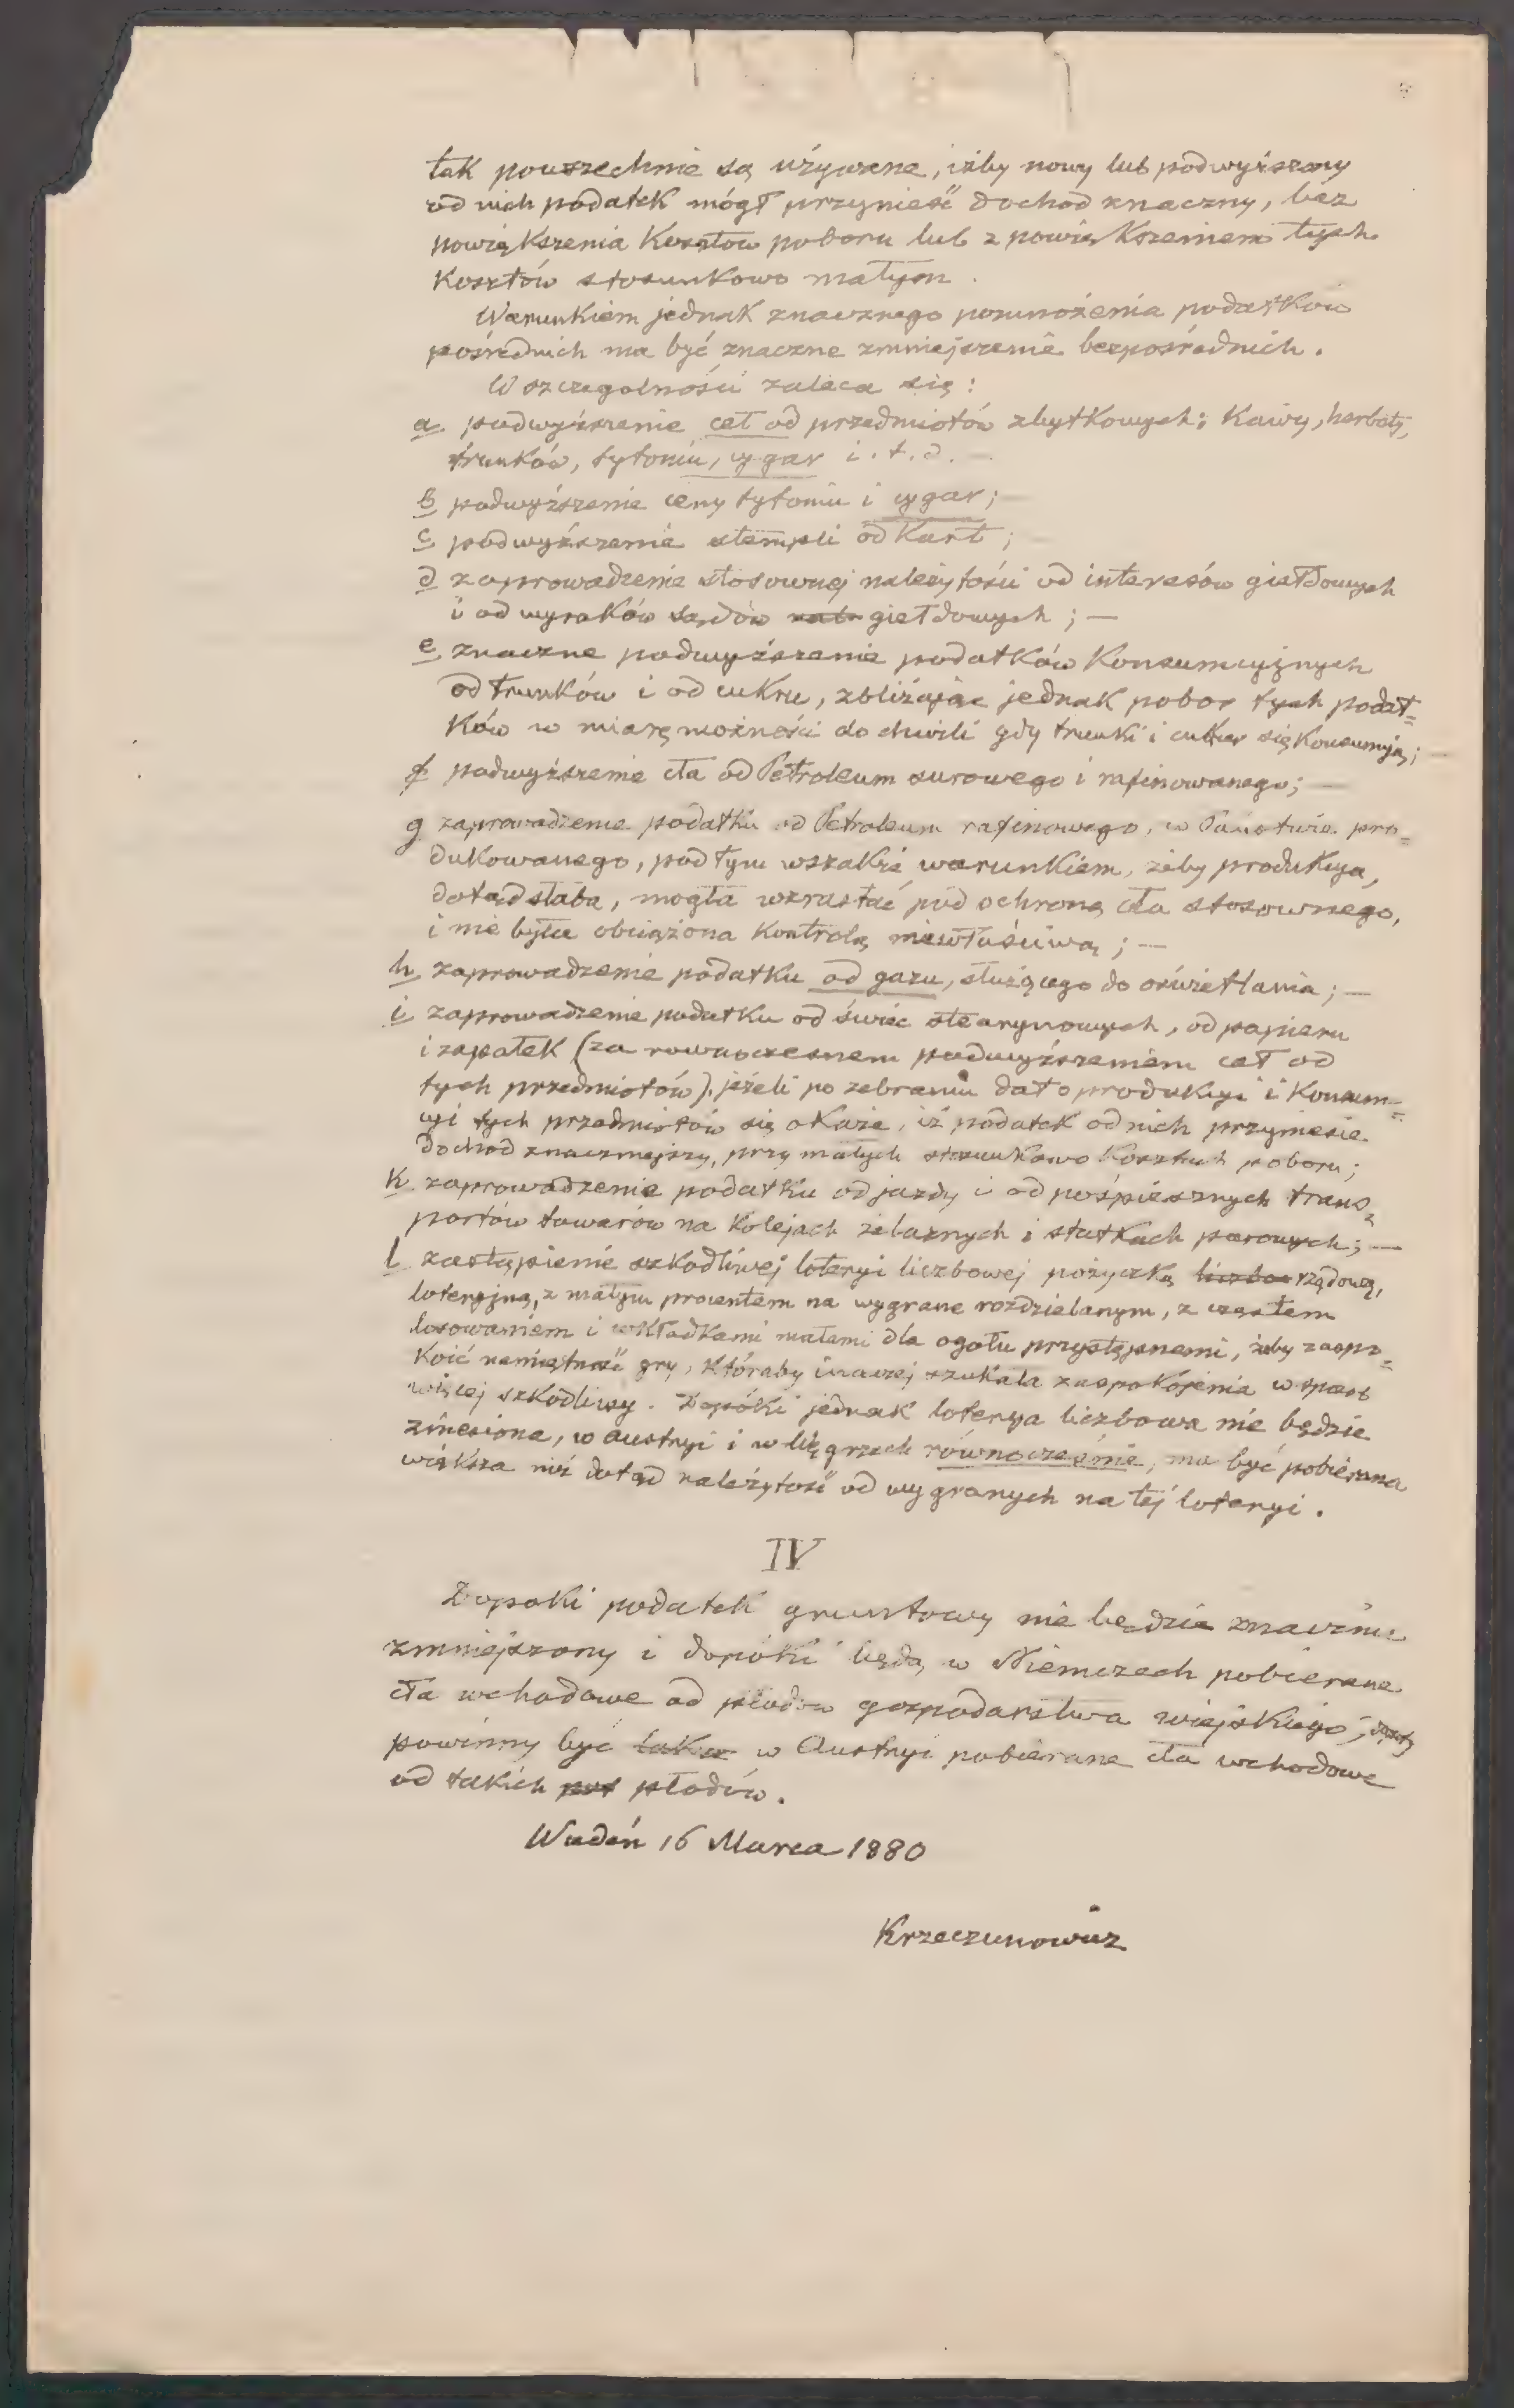 tak powszechnie są używane, iżby nowy lub podwyższony
od nich podatek mógł przynieść dochod znaczny, bez
powiększenia kosztów poboru lub z powiększeniem tych
kosztów stosunkowo małym.
Warunkiem jednak znacznego pomnożenia podatków
pośrednich ma być znaczne zmniejszenie bezpośrednich.
W szczegolności zaleca się:
a podwyższenie ceł od przedmiotów zbytkowych: Kawy, herbaty,
trunków, tytoniu, cygar i. t. d. —
b podwyższenie ceny tytoniu i cygar; —
c podwyższenie stempli od Kart; —
d zaprowadzenie stosownej należytości od interesów giełdowych
i od wyroków sądów giełdowych; —
e znaczne podwyższenie podatków Konsumcyjnych
od trunków i od cukru, zbliżając jednak pobor tych podat=
ków w miarę możności do chwili gdy trunki i cukier się Konsumują; —
f podwyższenie cła od Petroleum surowego i rafinowanego; —
g zaprowadzenie podatku od Petroleum rafinowego, w Państwie pro=
dukowanego, pod tym wszakże warunkiem, żeby produkcya,
dotąd słaba, mogła wzrastać pod ochroną cła stosownego,
i nie była obciążona Kontrolą niewłaściwą; —
h zaprowadzenie podatku od gazu, służącego do oświetlania; —
i zaprowadzenie podatku od świec stearynowych, od papieru
i zapałek (za rownoczesnem podwyższeniem ceł od
tych przedmiotów), jeżeli po zebraniu dat o produkcyi i Konsum=
cyi tych przedmiotów się okaże, iż podatek od nich przyniesie
dochod znaczniejszy, przy małych stosunkowo kosztach poboru;
k zaprowadzenie podatku od jazdy i od pośpiesznych trans=
portów towarów na Kolejach żelaznych i statkach parowych; —
l zastąpienie szkodliwej loteryi liczbowej pożyczką liczbow rządową,
loteryjną, z małym procentem na wygrane rozdzielanym, z częstem
losowaniem i wkładkami małemi dla ogołu przystępnemi, żeby zaspo=
koić namiętność gry, któraby inaczej szukała zaspokojenia w sposob
więcej szkodliwy. Dopóki jednak loterya liczbowa nie będzie
zniesiona, w Austryi i w Węgrzech równocześnie, ma być pobierana
większa niż dotąd należytość od wygranych na tej loteryi.
IV
Dopoki podatek gruntowy nie będzie znacznie
zmniejszony i dopóki będą w Niemczech pobierane
cła wchodowe od płodów gospodarstwa wiejskiego,
powinny być także w Austryi pobierane cła wchodowe
od takich płodów.
Wiedeń 16 Marca 1880
Krzeczunowicz